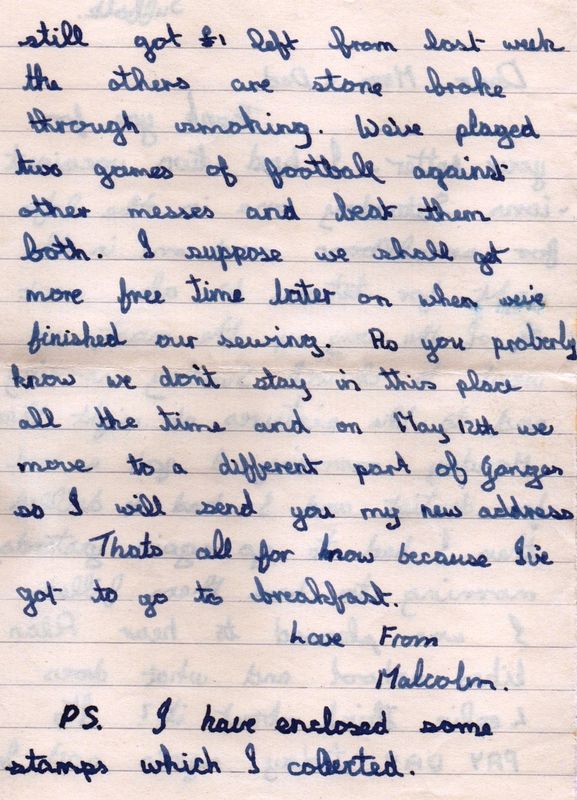 still got £1 left from last week
the others are stone broke
through smoking. We've played
two games of football against
other messes and beat them
both. I suppose we shall get
more free time later on when we've
finished our sewing. As you proberly
know we don't stay in this place
all the time and on May 12th we
move to a different part of Ganges
so I will send you my new address
Thats all for know because I've
got to go to breakfast.
Love From
Malcolm.
PS. I have enclosed some
stamps which I colected.